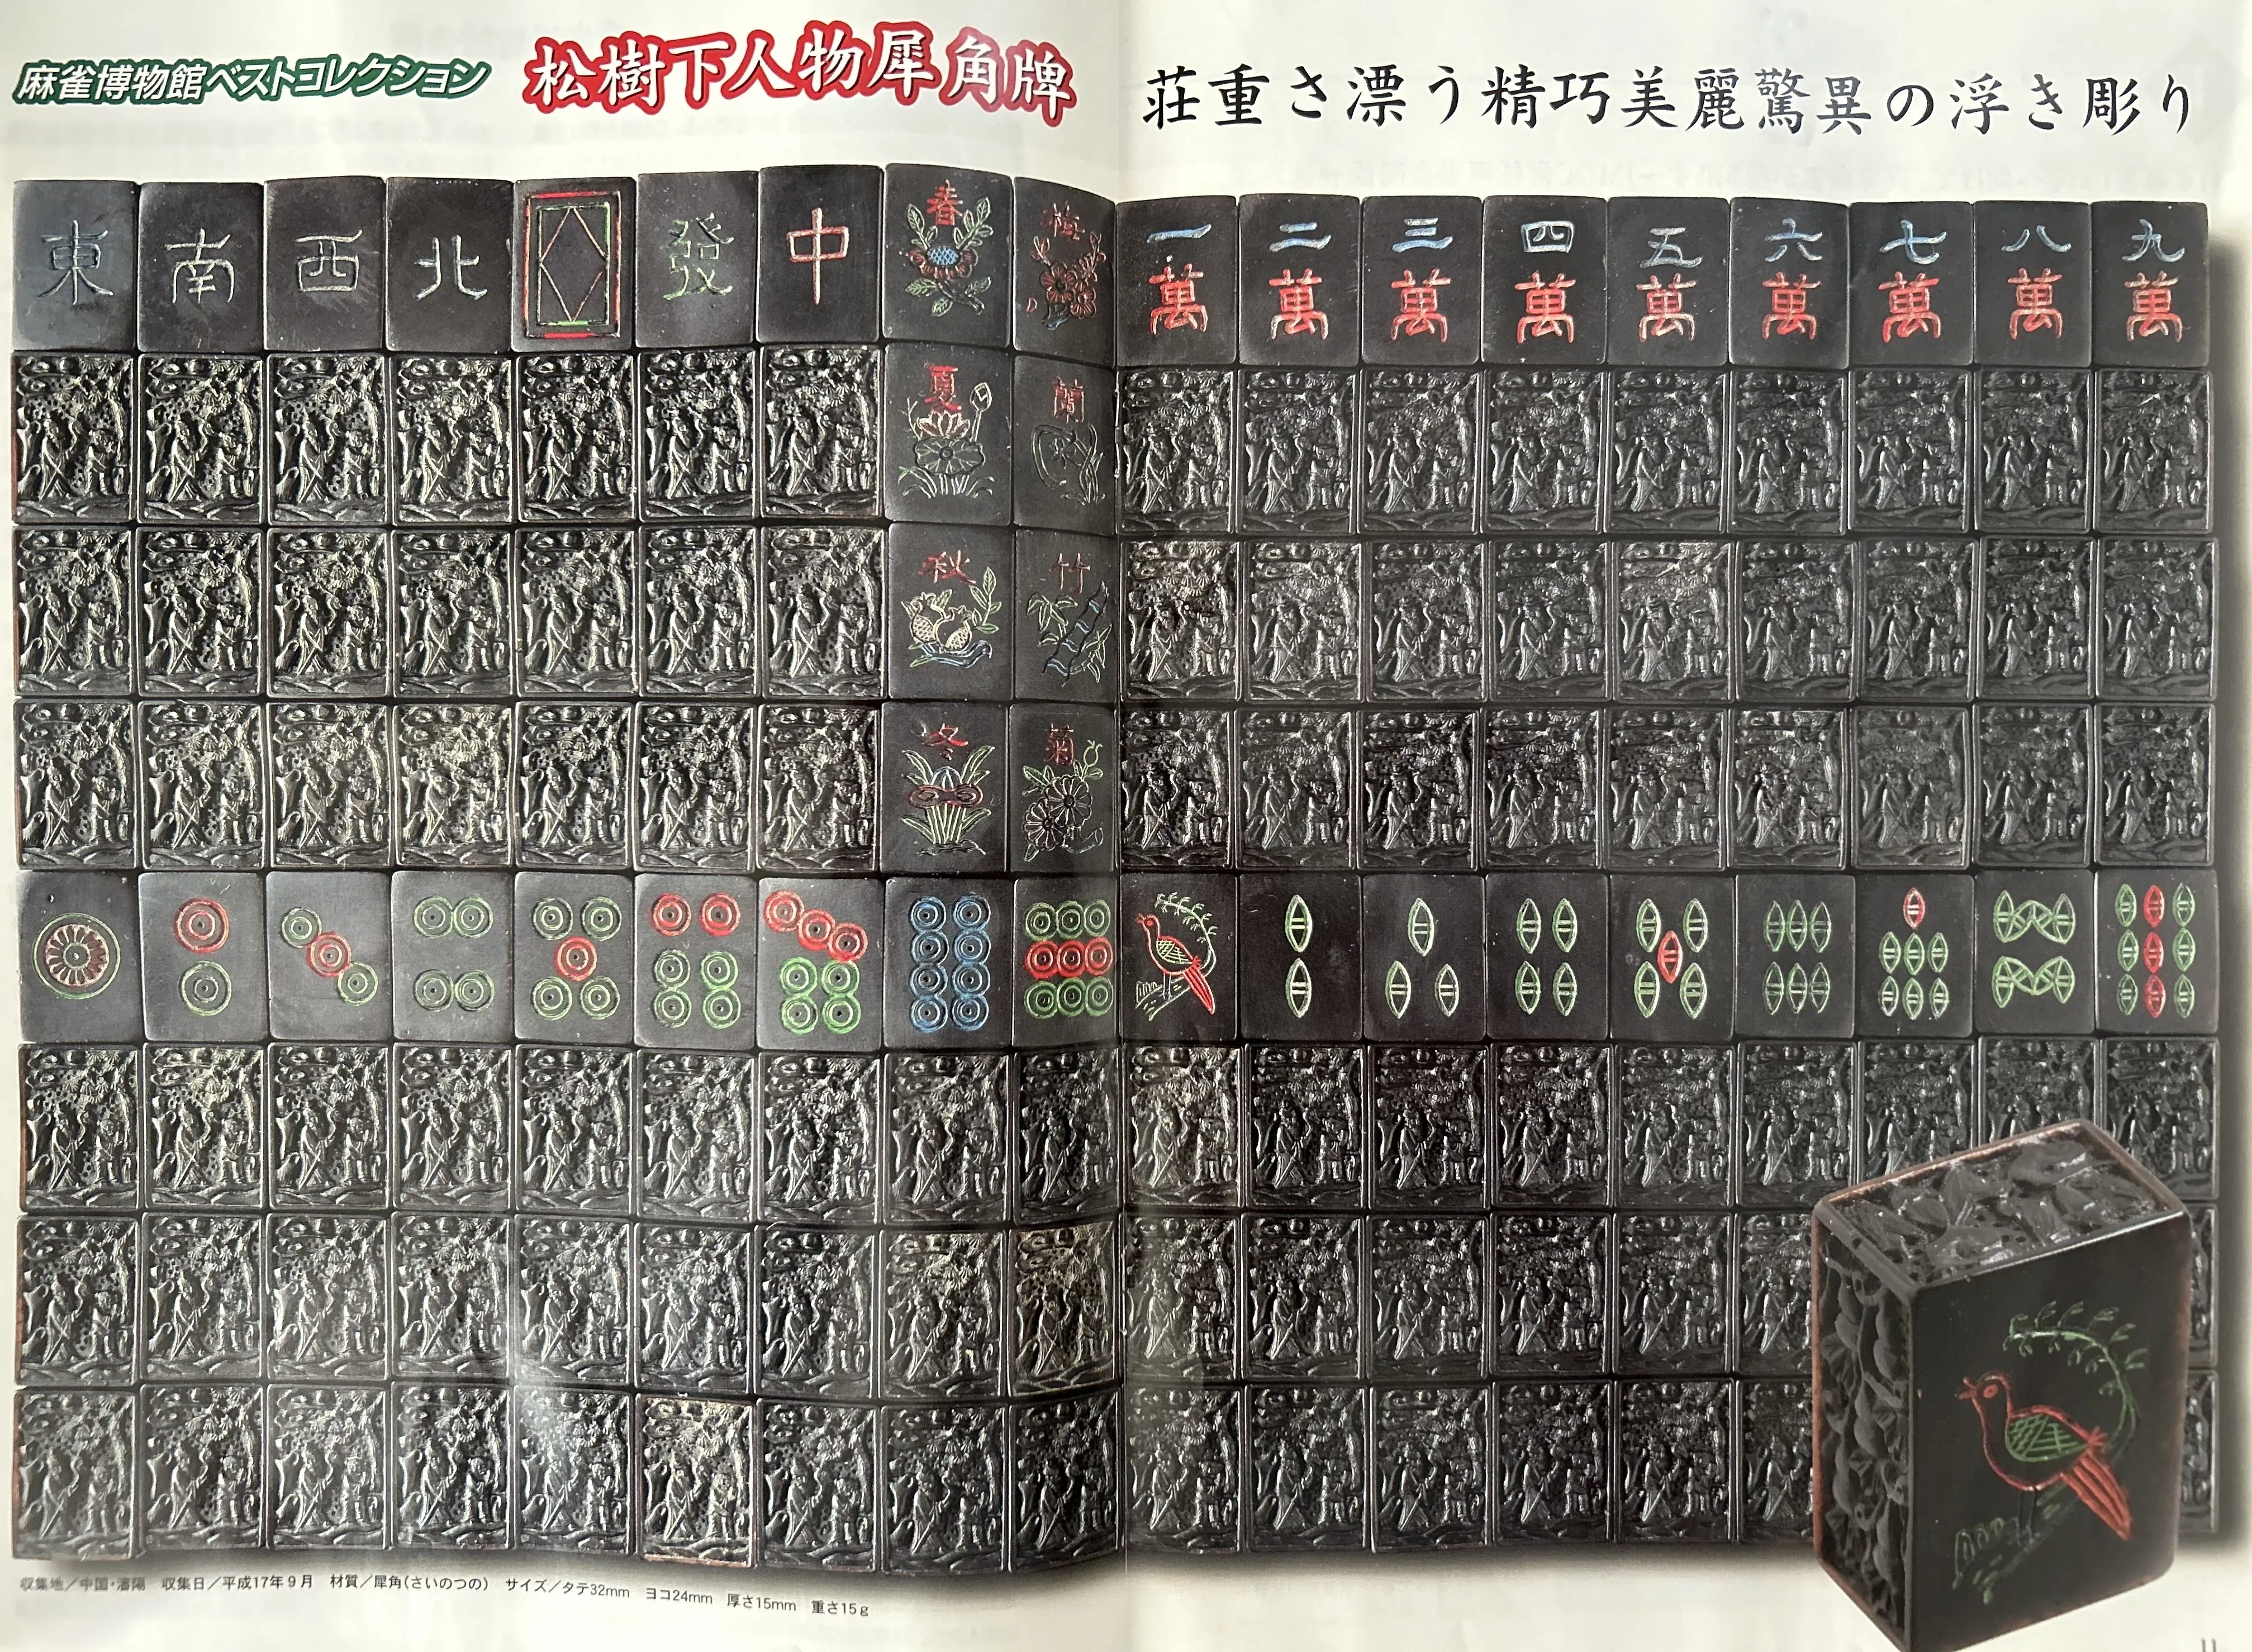 麻雀博物館ベストコレクション
松樹下人物犀角牌
荘重さ漂う精巧美麗驚異の浮き彫り
東 南 西 北 發 中 春 梅 一萬 二萬 三萬 四萬 五萬 六萬 七萬 八萬 九萬
夏 蘭
秋 竹
冬 菊
収集地／中国・瀋陽 収集日／平成17年9月 材質／犀角(さいのつの) サイズ／タテ32mm ヨコ24mm 厚さ15mm 重さ15g
11